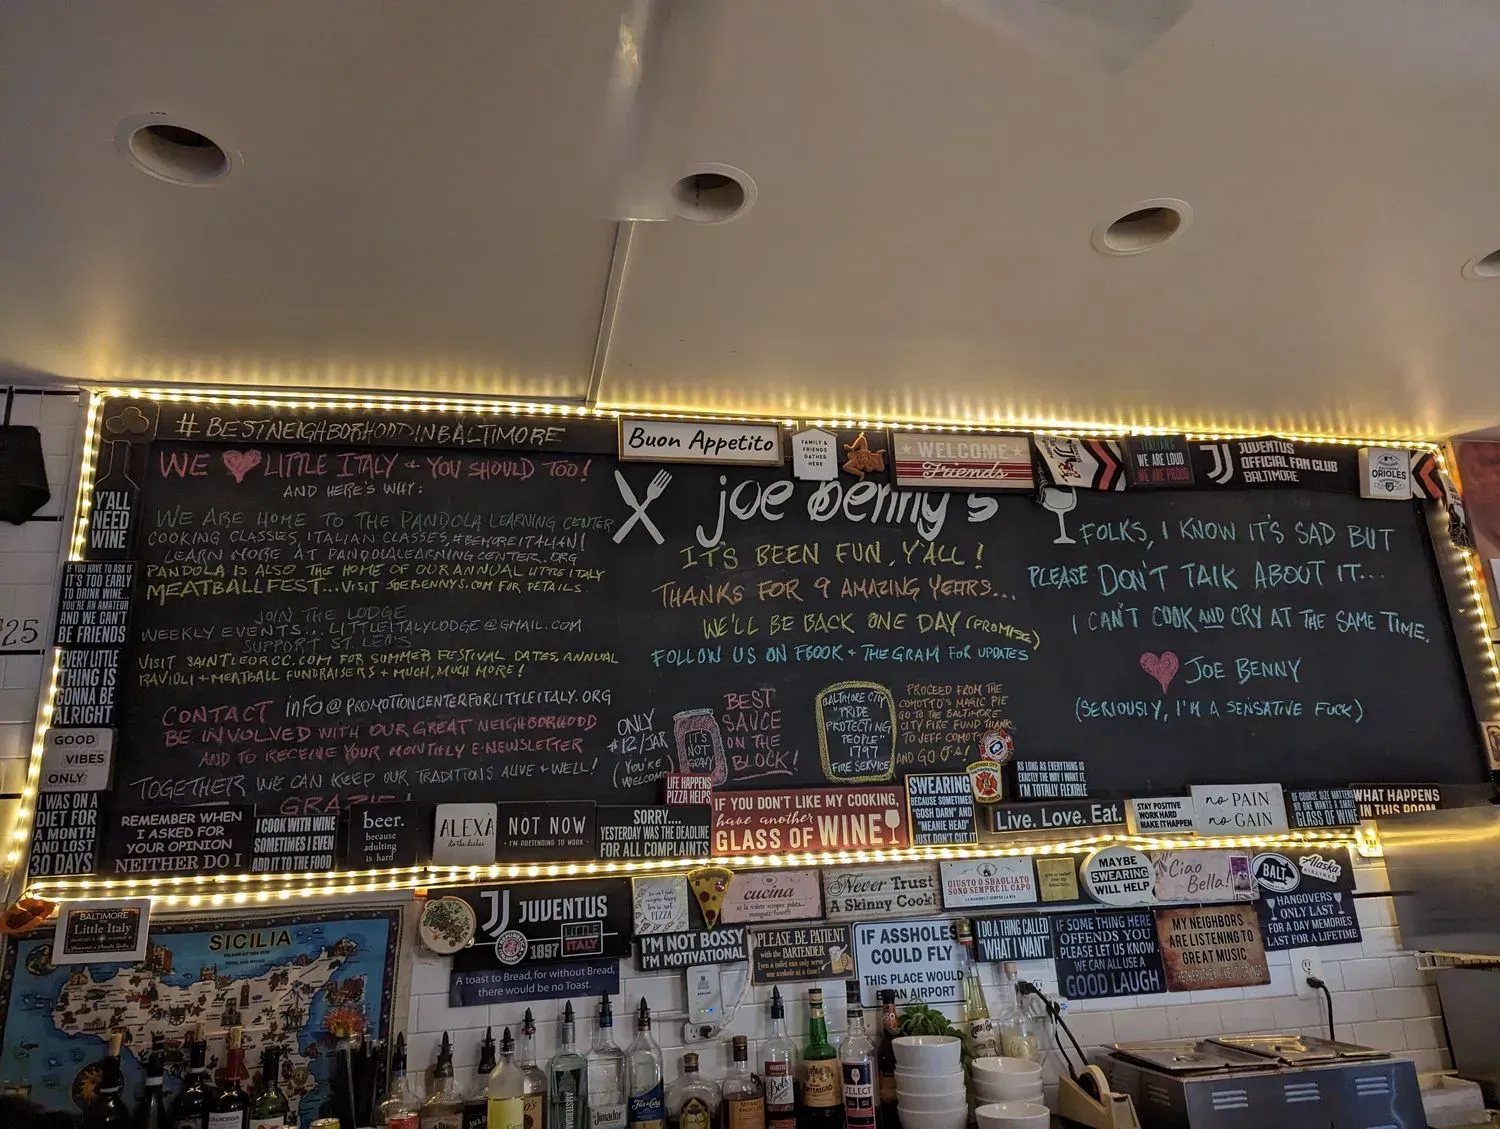 #BESTNEIGHBORHOODINBALTIMORE
WE LITTLE ITALY + YOU SHOULD TOO!
AND HERE'S WHY:
WE ARE HOME TO THE PANDOLA LEARNING CENTER
COOKING CLASSES, ITALIAN CLASSES, #BEMOREITALIAN!
LEARN MORE AT PANDOLALEARNINGCENTER.ORG
PANDOLA IS ALSO THE HOME OF OUR ANNUAL LITTLE ITALY
MEATBALL FEST...VISIT JOEBENNYS.COM FOR DETAILS
JOIN THE LODGE
WEEKLY EVENTS... LITTLEITALYLODGE@GMAIL.COM
SUPPORT ST. LEO'S
VISIT SAINTLEORCC.COM FOR SUMMER FESTIVAL DATES, ANNUAL
RAVIOLI + MEATBALL FUNDRAISERS + MUCH, MUCH MORE!
CONTACT info@PROMOTIONCENTERFORLITTLEITALY.ORG
BE INVOLVED WITH OUR GREAT NEIGHBORHOOD
AND TO RECEIVE YOUR MONTHLY E-NEWSLETTER
TOGETHER WE CAN KEEP OUR TRADITIONS ALIVE + WELL!
GRAZIE!
Buon Appetito
FAMILY &
FRIENDS
GATHER
HERE
WELCOME
Friends
WE ARE LOUD
WE ARE PROUD
JUVENTUS
OFFICIAL FAN CLUB
BALTIMORE
ORIOLES
joe benny's
IT'S BEEN FUN, Y'ALL!
THANKS FOR 9 AMAZING YEARS...
WE'LL BE BACK ONE DAY (PROMISE)
FOLLOW US ON FBOOK + THEGRAM FOR UPDATES
ONLY
$12/JAR
(YOU'RE
WELCOME)
IT'S
NOT
GRAVY
BEST
SAUCE
ON THE
BLOCK!
BALTIMORE CITY
"PRIDE
PROTECTING
PEOPLE"
1797
FIRE SERVICE
PROCEED FROM THE
COMOTTO'S MAGIC PIE
GO TO THE BALTIMORE
CITY FIRE FUND THANK
TO JEFF COMOTTO
AND GO O'S!
FOLKS, I KNOW IT'S SAD BUT
PLEASE DON'T TALK ABOUT IT...
I CAN'T COOK AND CRY AT THE SAME TIME.
JOE BENNY
(SERIOUSLY, I'M A SENSATIVE FUCK)
Y'ALL
NEED
WINE
IF YOU HAVE TO ASK IF
IT'S TOO EARLY
TO DRINK WINE...
YOU'RE AN AMATEUR
AND WE CAN'T
BE FRIENDS
EVERY LITTLE
THING IS
GONNA BE
ALRIGHT
GOOD
VIBES
ONLY
I WAS ON A
DIET FOR
A MONTH
AND LOST
30 DAYS
$25
REMEMBER WHEN
I ASKED FOR
YOUR OPINION
NEITHER DO I
I COOK WITH WINE
SOMETIMES I EVEN
ADD IT TO THE FOOD
beer.
because
adulting
is hard
ALEXA
do the dishes
NOT NOW
I'M PRETENDING TO WORK
SORRY....
YESTERDAY WAS THE DEADLINE
FOR ALL COMPLAINTS
LIFE HAPPENS
PIZZA HELPS
IF YOU DON'T LIKE MY COOKING,
have another
GLASS OF WINE
SWEARING
BECAUSE SOMETIMES
"GOSH DARN" AND
"MEANIE HEAD"
JUST DON'T CUT IT
AS LONG AS EVERYTHING IS
EXACTLY THE WAY I WANT IT,
I'M TOTALLY FLEXIBLE
Live. Love. Eat.
STAY POSITIVE
WORK HARD
MAKE IT HAPPEN
no PAIN
no GAIN
OF COURSE SIZE MATTERS
NO ONE WANTS A SMALL
GLASS OF WINE
WHAT HAPPENS
IN THIS ROOM
BALTIMORE
Little Italy
SICILIA
JUVENTUS
1897
LITTLE
ITALY
A toast to Bread, for without Bread,
there would be no Toast.
PIZZA
cucina
Never Trust
A Skinny Cook!
GIUSTO O SBAGLIATO
SONO SEMPRE IL CAPO
MAYBE
SWEARING
WILL HELP
Ciao
Bella!
BALT
Alaska
AIRLINES
I'M NOT BOSSY
I'M MOTIVATIONAL
PLEASE BE PATIENT
with the BARTENDER
Even a toilet can only serve
one asshole at a time!
IF ASSHOLES
COULD FLY
THIS PLACE WOULD
BE AN AIRPORT
I DO A THING CALLED
"WHAT I WANT"
IF SOMETHING HERE
OFFENDS YOU
PLEASE LET US KNOW
WE CAN ALL USE A
GOOD LAUGH
MY NEIGHBORS
ARE LISTENING TO
GREAT MUSIC
WHETHER THEY LIKE IT OR NOT
HANGOVERS
ONLY LAST
FOR A DAY MEMORIES
LAST FOR A LIFETIME
Bols
SELECT